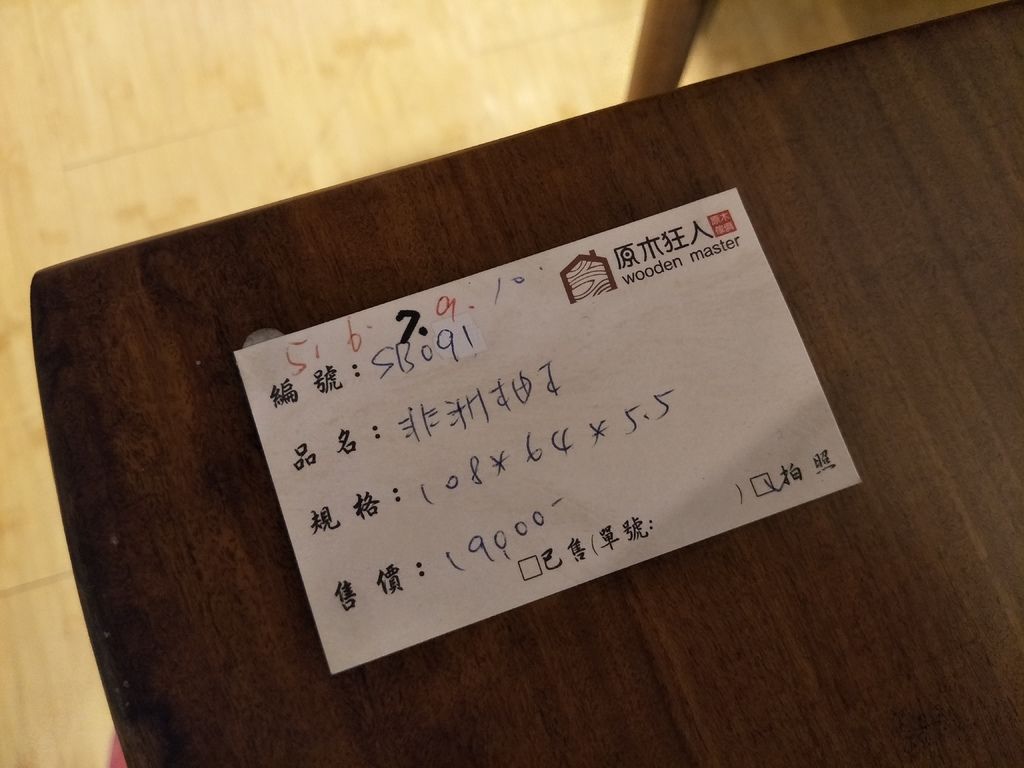 原木狂人
wooden master
5. 6. 7. 9. 10.
編號：SB091
品名：非
規格：108*64*5.5
售價：19000-
□已售(單號: ) ☑拍照